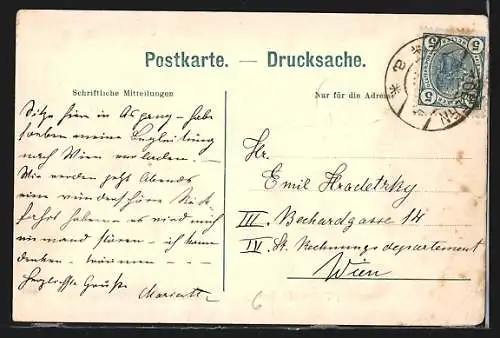 Postkarte. — Drucksache.
Schriftliche Mitteilungen
Nur für die Adresse
Sitze hier in Aspang – habe
soeben meine Begleitung
nach Wien verladen. –
Wir werden jetzt Abends
eine wunderschöne Rück
fahrt haben – es wird mich
niemand stören – ich kann
denken –
Herzlichste Grüße
Hr.
Emil Hradetzky
III. Bechardgasse 14
IV. St. Rechnungsdepartement
Wien
5 5
6